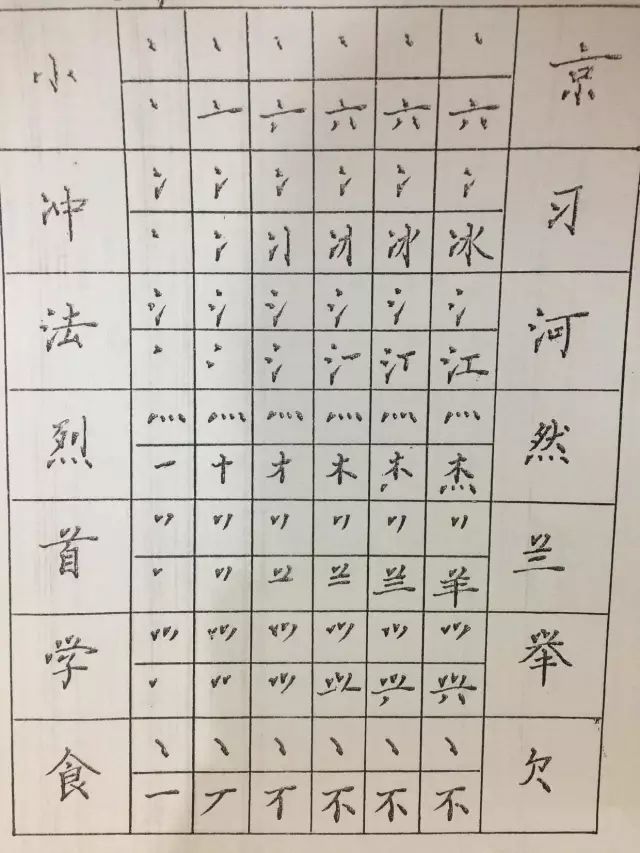 小 丶 丶 丶 丶 丶 丶 京
丶 亠 六 六 六
冲 冫 冫 冫 冫 冫 冫 习
丶 冫 冰 冰
法 氵 氵 氵 氵 氵 氵 河
丶 冫 氵 汀 江
烈 灬 灬 灬 灬 灬 灬 然
一 十 才 木 杰
首 丷 丷 丷 丷 丷 丷 兰
丶 丷 䒑 兰 羊
学 ⺍ ⺍ ⺍ ⺍ ⺍ ⺍ 举
丶 ⺍ 兴
食 丶 丶 丶 丶 丶 丶 欠
一 丆 不 不 不